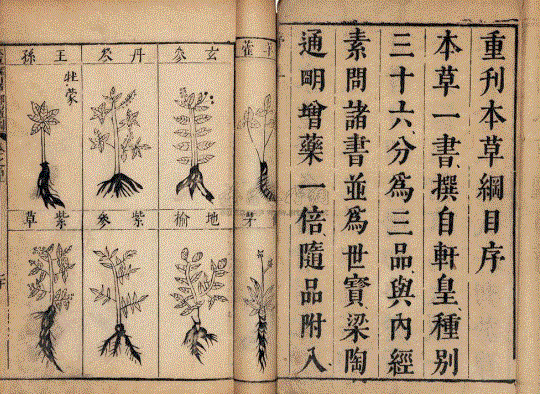 重刊本草綱目序
本草一書撰自軒皇種別
三十六分爲三品與內經
素問諸書並爲世寶梁陶
通明增藥一倍隨品附入
玄叅
丹叅
王孫
牡蒙
地榆
紫參
紫草